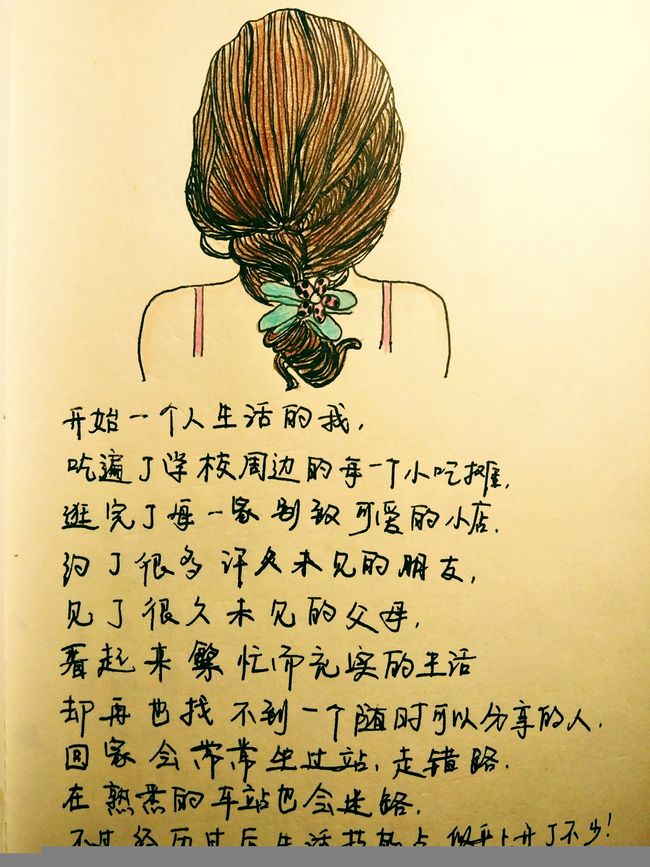 开始一个人生活的我,
吃遍了学校周边的每一个小吃摊,
逛完了每一家别致可爱的小店,
约了很多许久未见的朋友,
见了很久未见的父母,
看起来繁忙而充实的生活
却再也找不到一个随时可以分享的人.
回家会常常坐过站,走错路.
在熟悉的车站也会迷路.
不过经历过后生活技能点似乎上升了不少!